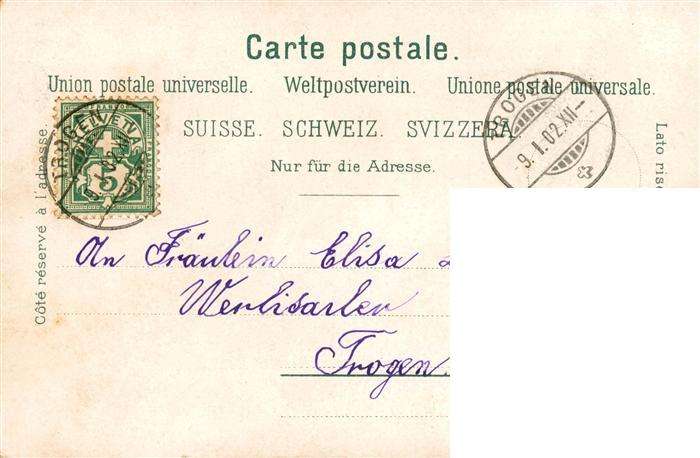 Carte postale.
Union postale universelle. Weltpostverein. Unione postale universale.
SUISSE. SCHWEIZ. SVIZZERA.
Nur für die Adresse.
Côté réservé à l'adresse.
Lato rise
TROGEN
5
TROGEN
9.I.02.XII
An Fräulein Elisa
Trogen.